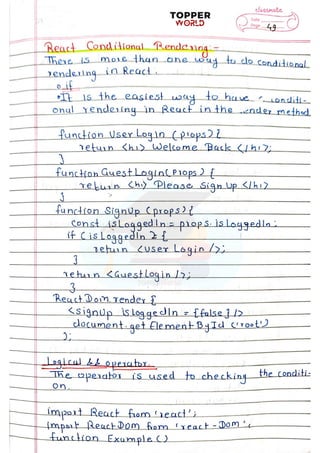 TOPPER
WORLD
classmate
Date
Page 49
React Conditional Rendering :-
There is more than one way to do conditional
rendering in React.
o if
• It is the easiest way to have conditi-
onal rendering in React in the render method
function User Login (props) {
return <h1> Welcome Back </h1>;
}
function Guest Login (props) {
return <h1> Please Sign Up </h1>
}
function SignUp (props) {
Const isLoggedIn = props. Is loggedIn;
if ( isLoggedIn) {
return <User Login />;
}
return <Guest login />;
}
React Dom. render {
<signUp isloggedIn = {false} />
document. get Element By Id ('root')
);
Logical && operator.
The operator is used to checking the conditi-
on.
import React from 'react';
import React DOM from 'react - Dom';
function Example ()